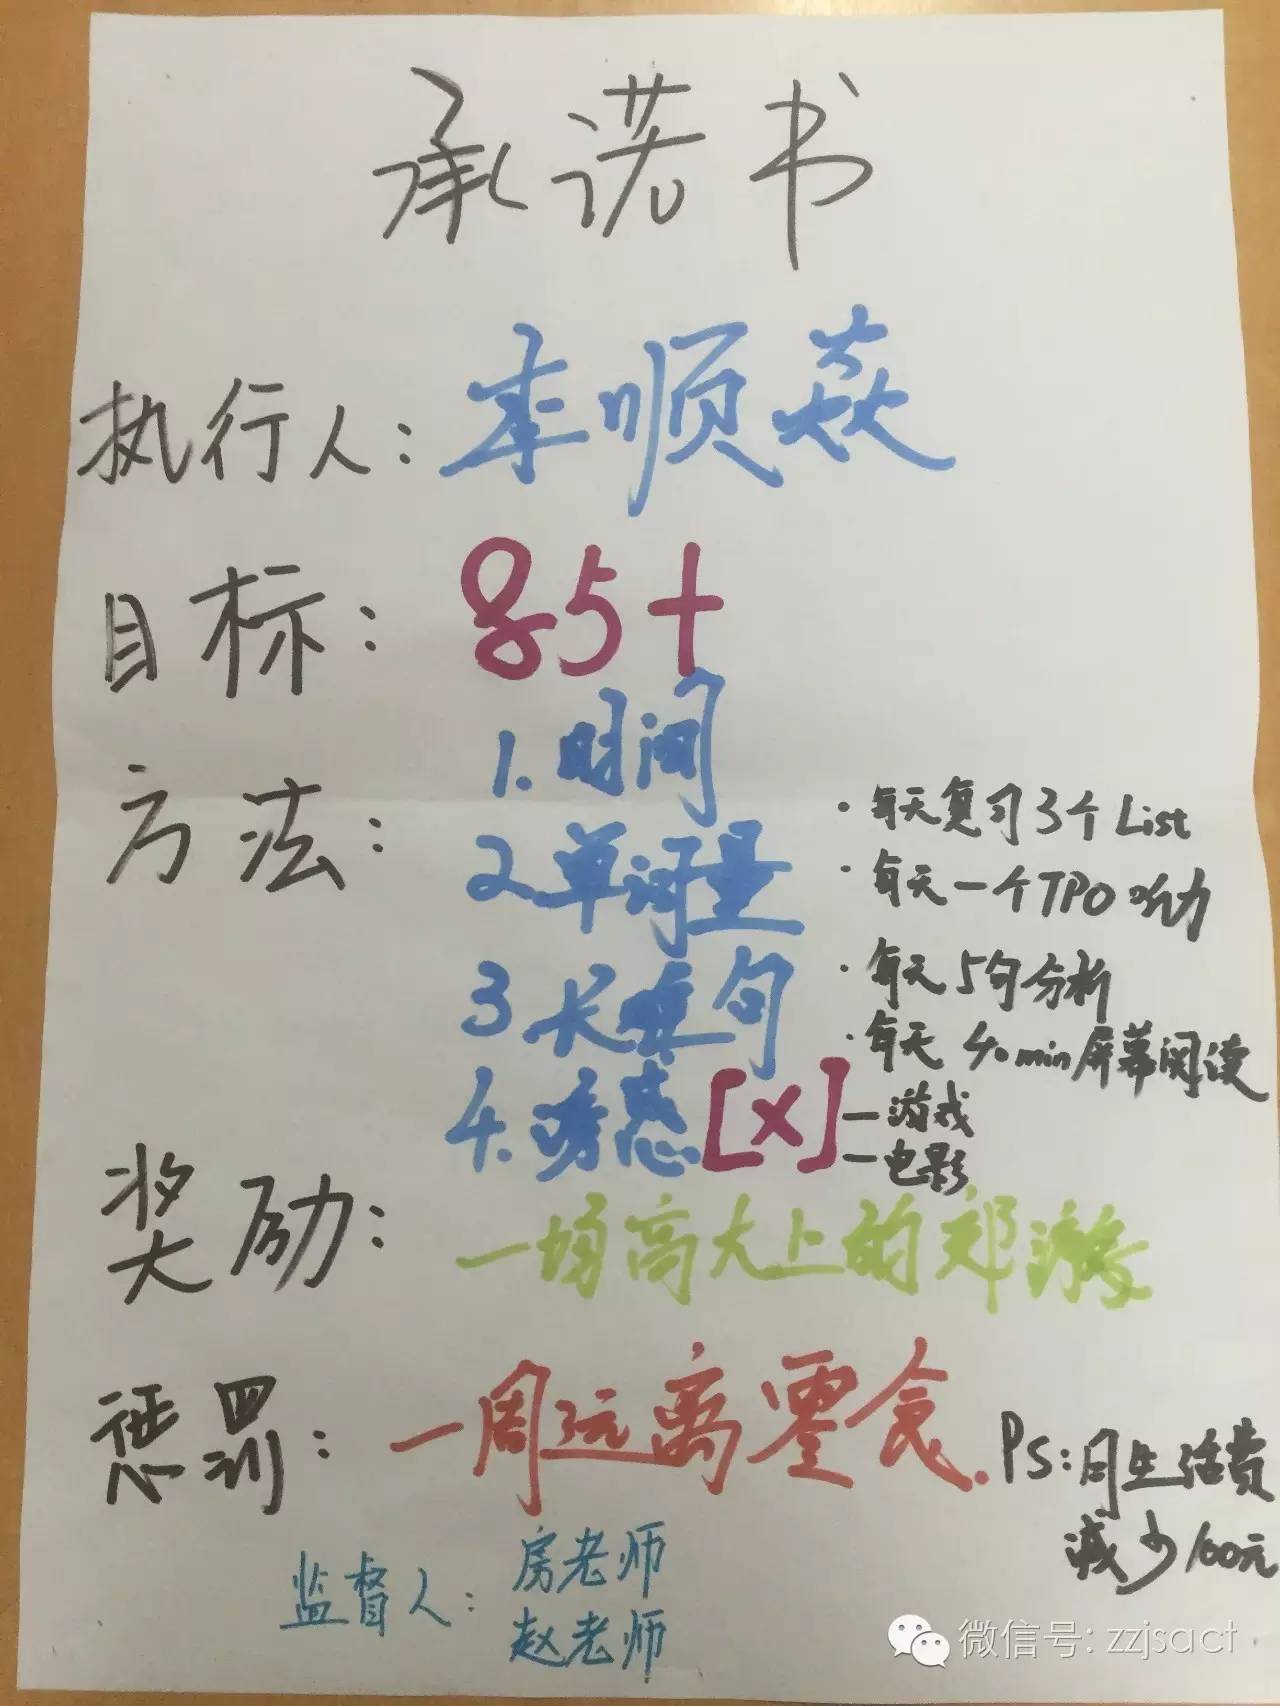 承诺书
执行人：李顺焱
目标：85+
方法：1.时间
2.单词量
3.长难句
4.诱惑[×]—游戏
—电影
·每天复习3个List
·每天一个TPO听力
·每天5句分析
·每天40min屏幕阅读
奖励：一场高大上的郊游
惩罚：一周远离零食.
Ps:月生活费
减少100元
监督人：房老师
赵老师
微信号: zzjsact